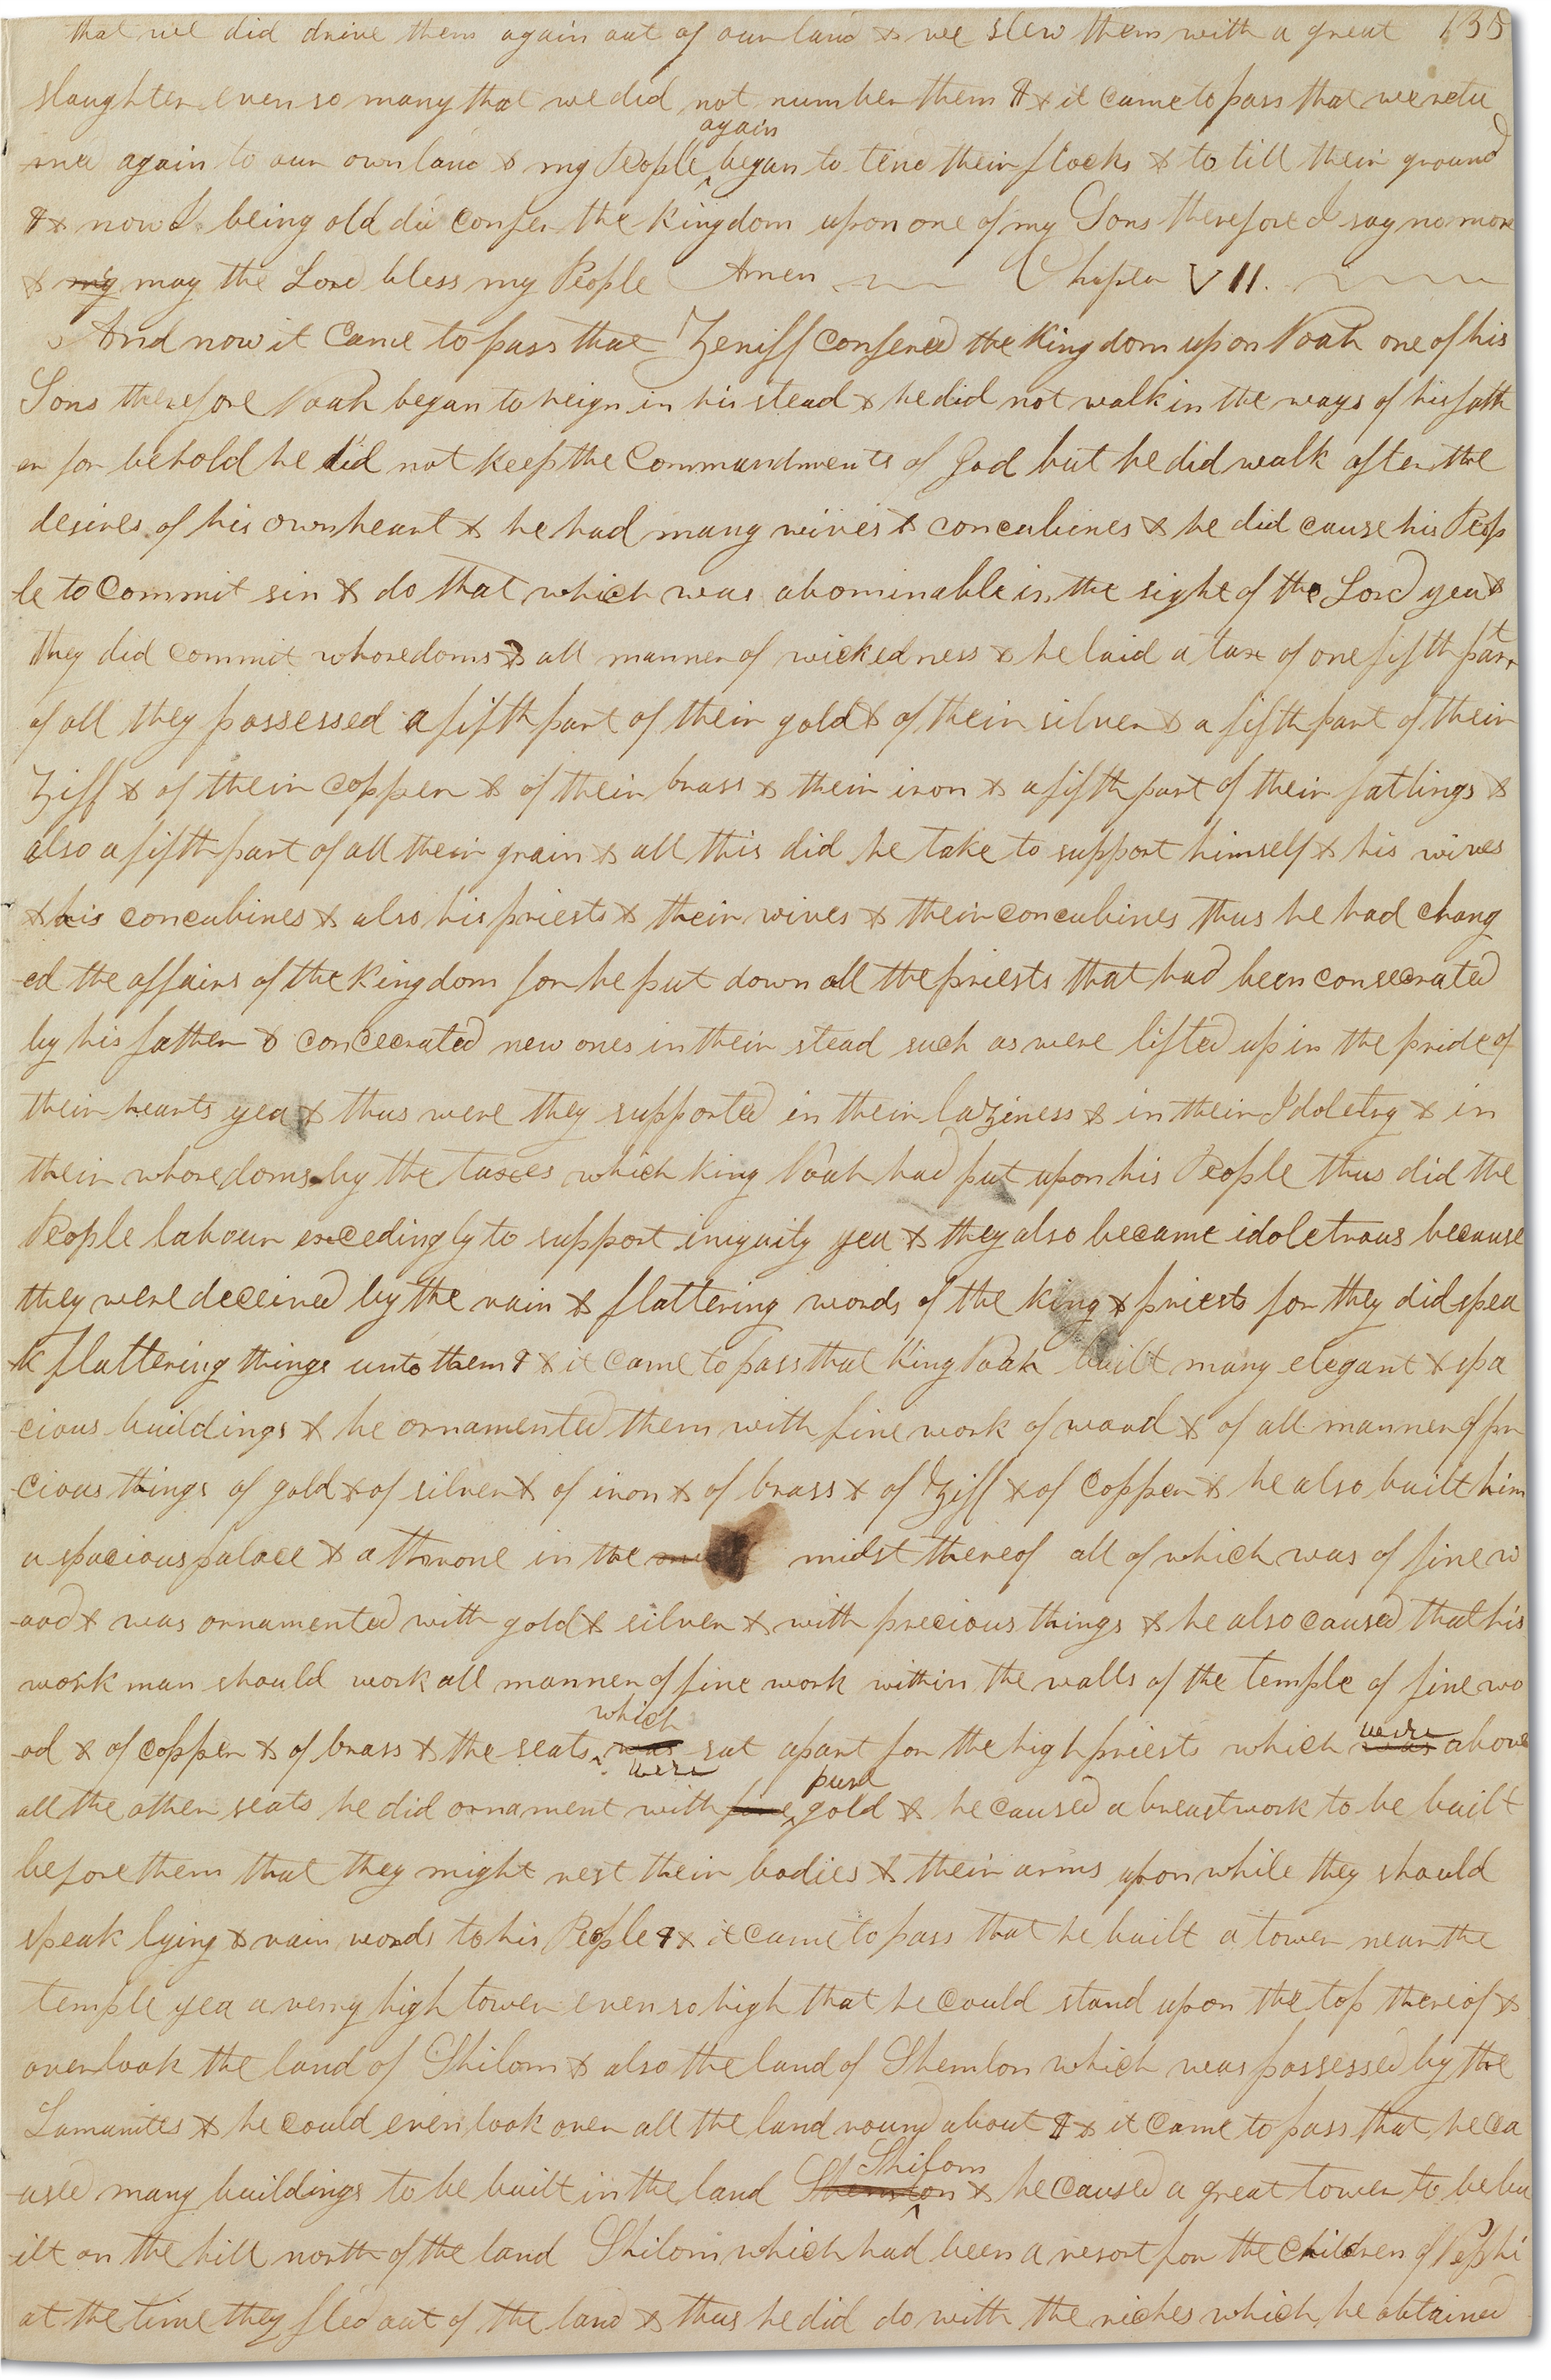 that we did drive them again out of our land & we slew them with a great 135
slaughter even so many that we did not number them ¶ & it came to pass that we retu
again
-rned again to our own land & my People ^ began to tend their flocks & to till their ground
¶ & now I being old did confer the kingdom upon one of my Sons therefore I say no more
& my may the Lord bless my People Amen Chapter VII.
And now it came to pass that Zeniff confered the Kingdom upon Noah one of his
Sons therefore Noah began to reign in his stead & he did not walk in the ways of his fath
er for behold he did not keep the Commandments of God but he did walk after the
desires of his own heart & he had many wives & concubines & he did cause his Peop
-le to Commit sin & do that which was abominable in the sight of the Lord yea &
they did commit whoredoms & all manner of wickedness & he laid a tax of one fifth part
of all they possessed a fifth part of their gold & of their silver & a fifth part of their
Ziff & of their copper & of their brass & their iron & a fifth part of their fatlings &
also a fifth part of all their grain & all this did he take to support himself & his wives
& his concubines & also his priests & their wives & their concubines thus he had chang
-ed the affairs of the Kingdom for he put down all the priests that had been consecrated
by his father & concecrated new ones in their stead such as were lifted up in the pride of
their hearts yea & thus were they supported in their laziness & in their Idoletry & in
their whoredoms by the taxes which king Noah had put upon his People thus did the
People labour excedingly to support iniquity yea & they also became idoletrous because
they were deceived by the vain & flattering words of the king & priests for they did spea
-k flattering things unto them ¶ & it came to pass that King Noah built many elegant & spa
-cious buildings & he ornamented them with fine work of wood & of all manner of pre
-cious things of gold & of silver & of iron & of brass & of Ziff & of copper & he also built him
a spacious palace & a throne in the midst thereof all of which was of fine w
-ood & was ornamented with gold & silver & with precious things & he also caused that his
work man should work all manner of fine work within the walls of the temple of fine wo
which were
-od & of copper & of brass & the seats ^ was sat apart for the high priests which was above
were pure
all the other seats he did ornament with fine ^ gold & he caused a breastwork to be built
before them that they might rest their bodies & their arms upon while they should
speak lying & vain words to his People ¶ & it came to pass that he built a tower near the
temple yea a very high tower even so high that he could stand upon the top thereof &
overlook the land of Shilom & also the land of Shemlon which was possessed by the
Lamanites & he could even look over all the land round about ¶ & it came to pass that he ca
Shilom
-used many buildings to be built in the land Shemlon ^ & he caused a great tower to be bu
-ilt on the hill north of the land Shilom which had been a resort for the children of Nephi
at the time they fled out of the land & thus he did do with the riches which he obtained